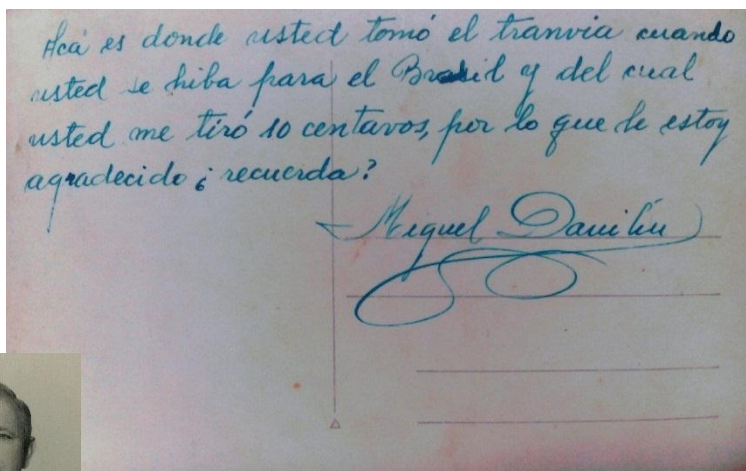 Acá es donde usted tomó el tranvia cuando
usted se hiba para el Brasil y del cual
usted me tiró 10 centavos, por lo que le estoy
agradecido ¿ recuerda?
Miguel Danilin